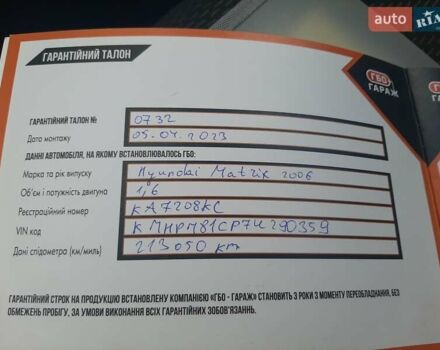 auto RIA
ГАРАНТІЙНИЙ ТАЛОН
ГБО
ГАРАЖ
ГАРАНТІЙНИЙ ТАЛОН № 0732
Дата монтажу 05.04.2023
ДАННІ АВТОМОБІЛЯ, НА ЯКОМУ ВСТАНОВЛЮВАЛОСЬ ГБО:
Марка та рік випуску Hyundai Matrix 2006
Об'єм і потужність двигуна 1,6
Реєстраційний номер KA7208KC
VIN код KMHPM81CP7U290359
Дані спідометра (км/миль) 213050 km
ГАРАНТІЙНИЙ СТРОК НА ПРОДУКЦІЮ ВСТАНОВЛЕНУ КОМПАНІЄЮ «ГБО - ГАРАЖ» СТАНОВИТЬ 3 РОКИ З МОМЕНТУ ПЕРЕОБЛАДНАННЯ, БЕЗ
ОБМЕЖЕНЬ ПРОБІГУ, ЗА УМОВИ ВИКОНАННЯ ВСІХ ГАРАНТІЙНИХ ЗОБОВ'ЯЗАННЬ.